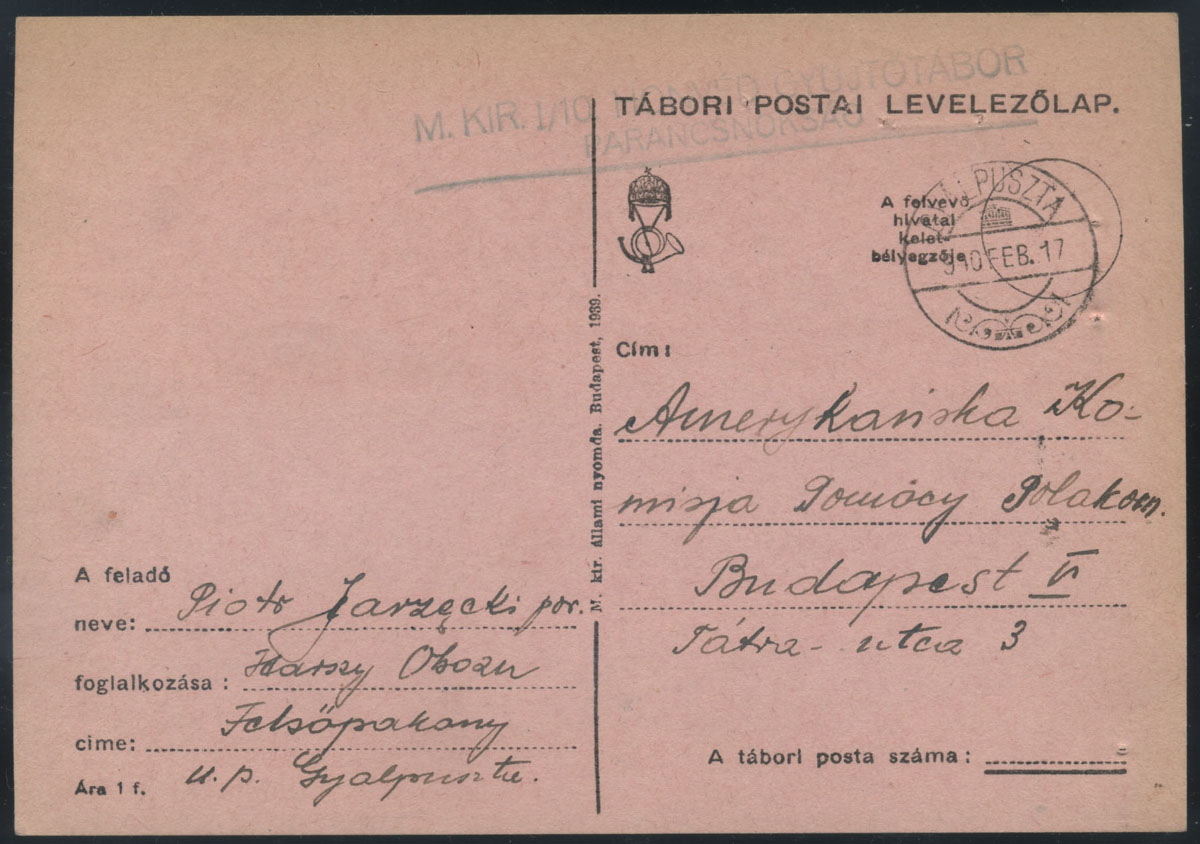 M. KIR. I/10. HONVÉD GYŰJTŐTÁBOR
PARANCSNOKSÁG
TÁBORI POSTAI LEVELEZŐLAP.
A felvevő
hivatal
kelet-
bélyegzője
GYÁLPUSZTA
940 FEB. 17
M. kir. Állami nyomda. Budapest, 1939.
Cím:
Amerykańska Ko-
misja Pomocy Polakom.
Budapest VI
Tátra-utca 3
A tábori posta száma:
A feladó
neve: Piotr Jarzęcki por.
foglalkozása: Starszy Obozu
cime: Felsőpakony
Ára 1 f. u.p. Gyalpuszta.